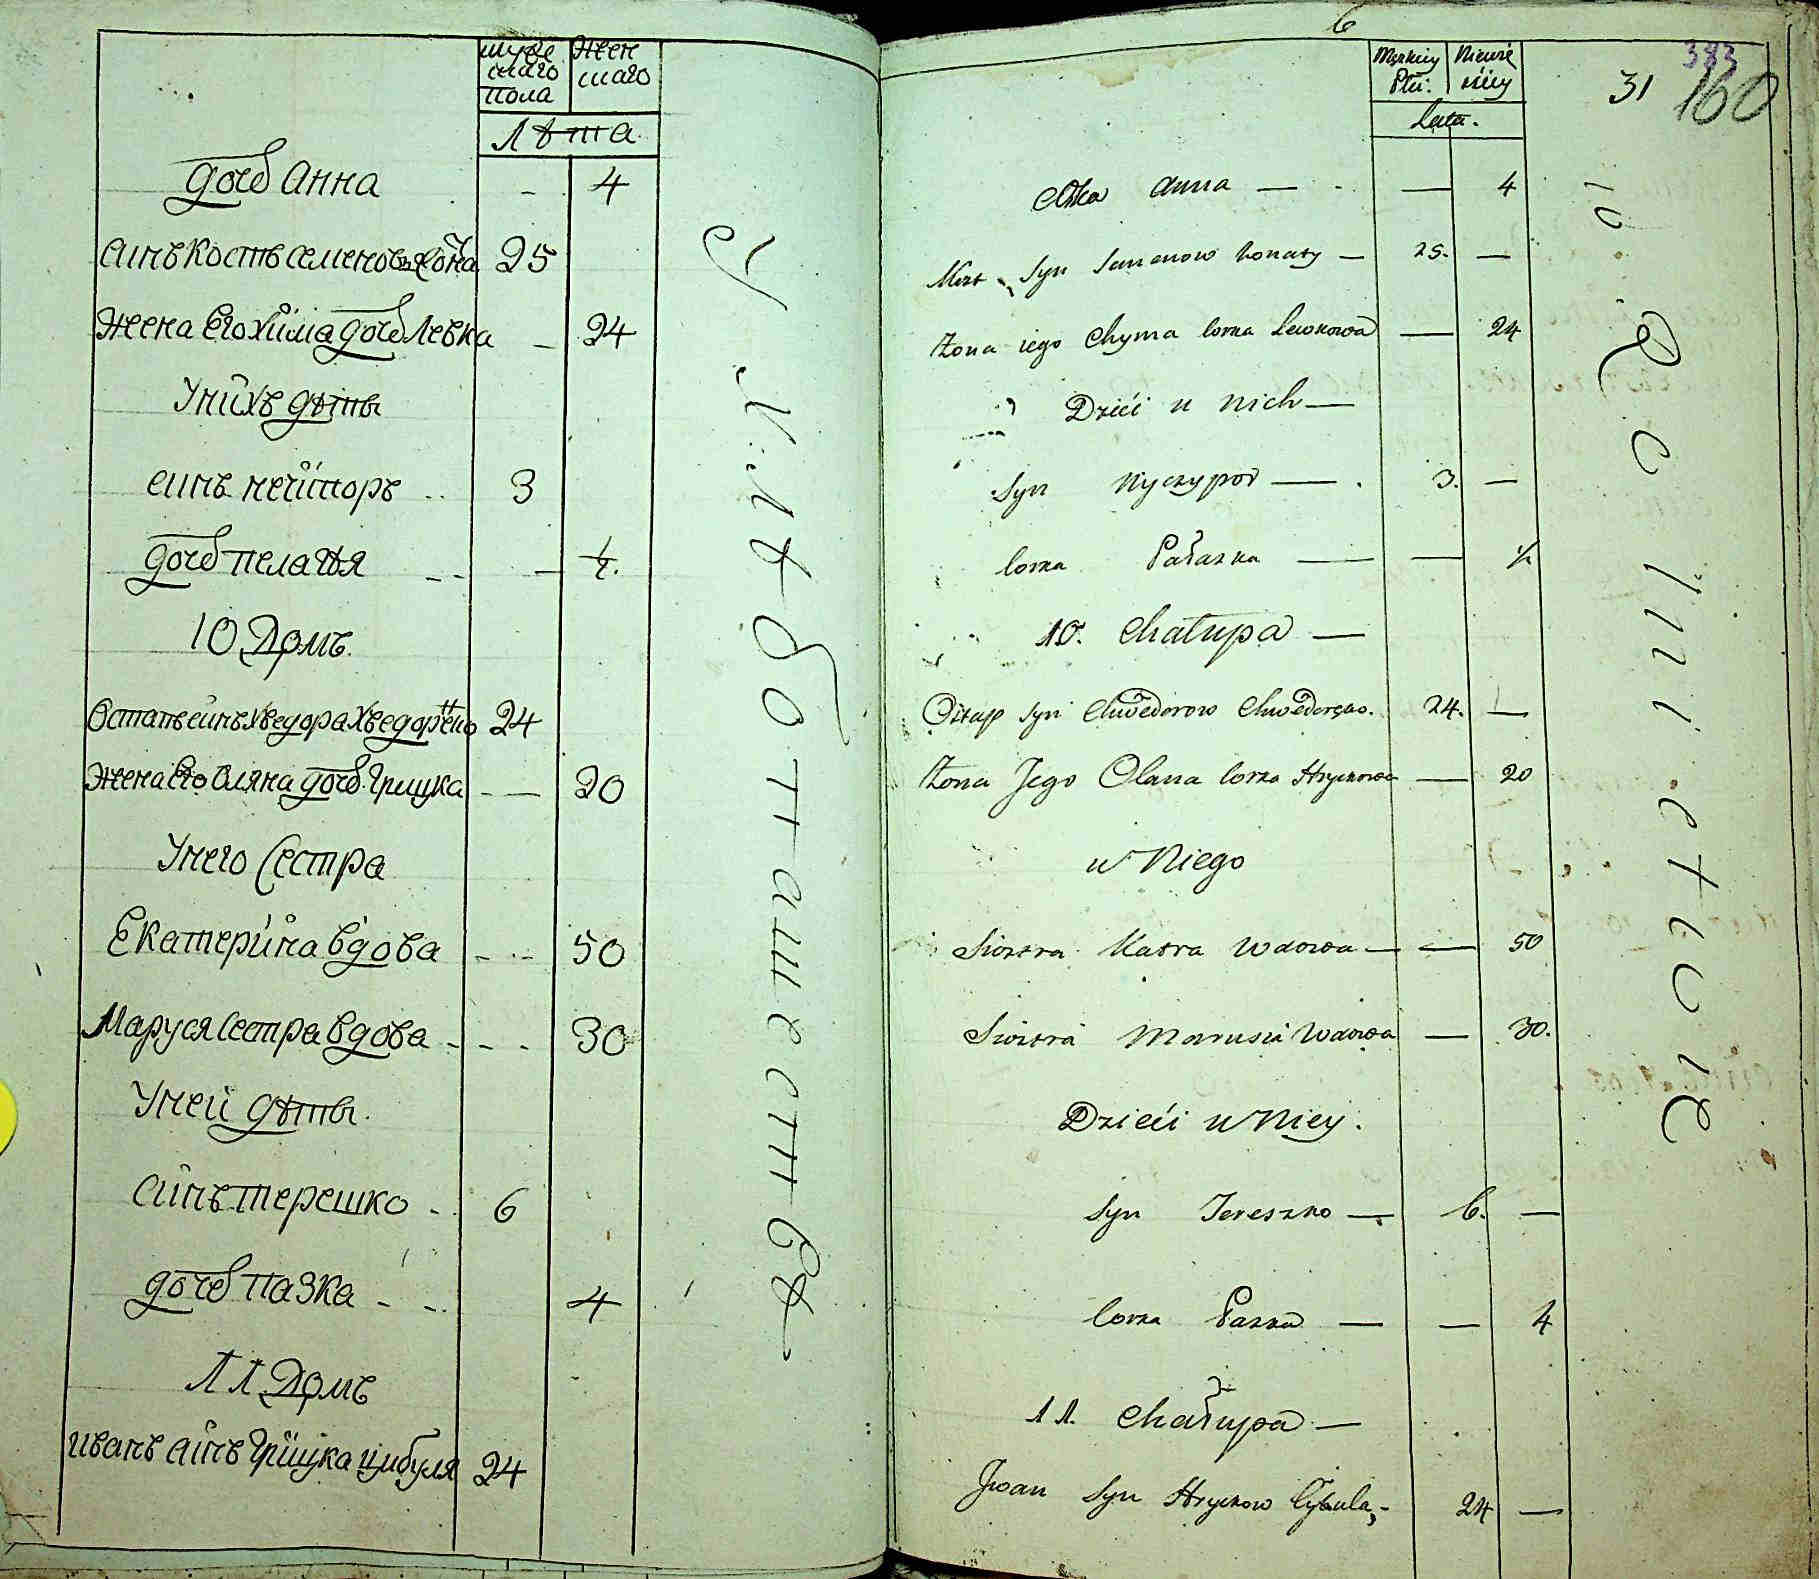 муже Жен
скаго скаго
пола
Лѣта
дочь Анна - 4
синъ Кость Семеновъ 25
жена Его Хима дочь Левка - 24
У нихъ дѣты
синъ нечипоръ 3
дочь пелагѣя - 1/2.
10 Домъ
Остапъ синъ Хведора Хведоренко 24
жена Его Оляна дочь Грицка - 20
У него Сестра
Екатерина вдова - 50
Маруся Сестра вдова - 30
У ней дѣты
синъ терешко 6
дочь пазка 4
11 Домъ
иванъ синъ Грицка цибуля 24
У К. Л ѣ б о п а ш е с т в ѣ
6
383
31 160
Męzkiey Niewie
Płci. skiey
Lata.
Anna — — 4
Kost Syn Semenow żonaty — 25. —
Żona iego Chyma Corka Lewkowa — 24
Dzieci u nich —
Syn Nyczypor — 3. —
Corka Pałazka — — 1/2
10. Chałupa —
Ostap Syn Chwedorow Chwedorenko. 24. —
Żona Jego Olana Corka Hryckowa — 20
u Niego
Siostra Katra Wdowa — — 50
Siostra Marusia Wdowa — 30.
Dzieci u Niey.
Syn Tereszko — 6. —
Corka Pazka — — 4
11. Chałupa —
Jwan Syn Hryckow Cybula, - 24 —
R o l n i c t w i e